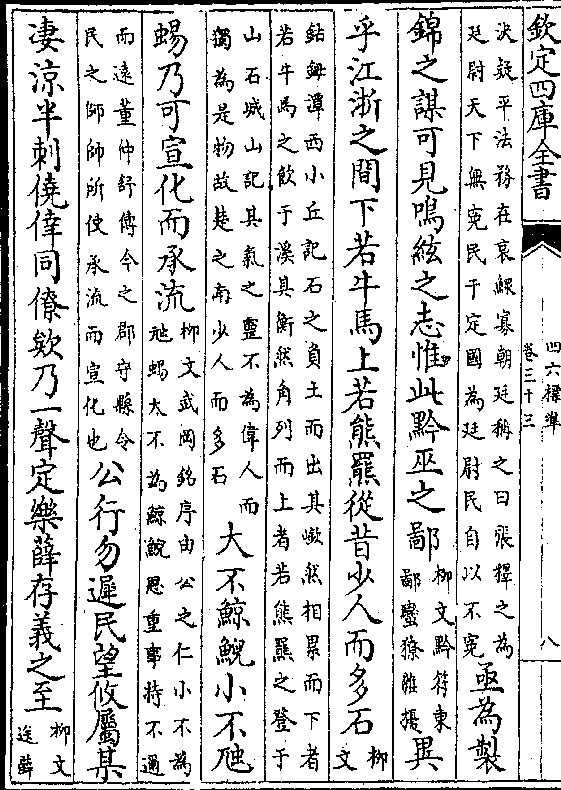 欽定四庫全書
四六標準
卷三十三
八
決疑平法務在哀鰥寡朝廷稱之曰張釋之為
廷尉天下無寃民于定國為廷尉民自以不寃
亟為製
錦之謀可見鳴絃之志惟此黔巫之鄙
柳文黔符東
鄙蠻獠雜擾
異
乎江浙之間下若牛馬上若熊羆從昔少人而多石
柳
文
鈷鉧潭西小丘記石之負土而出其嶔然相累而下者
若牛馬之飲于溪其衝然角列而上者若熊羆之登于
山石城山記其氣之靈不為偉人而
獨為是物故楚之南少人而多石
大不鯨鯢小不虺
蜴乃可宣化而承流
柳文武岡銘序由公之仁小不為
虺蜴大不為鯨鯢恩重事特不邇
而遠董仲舒傳今之郡守縣令
民之師帥所使承流而宣化也
公行勿遲民望攸屬某
淒涼半刺僥倖同僚欸乃一聲定樂薛存義之至
柳文
送薛